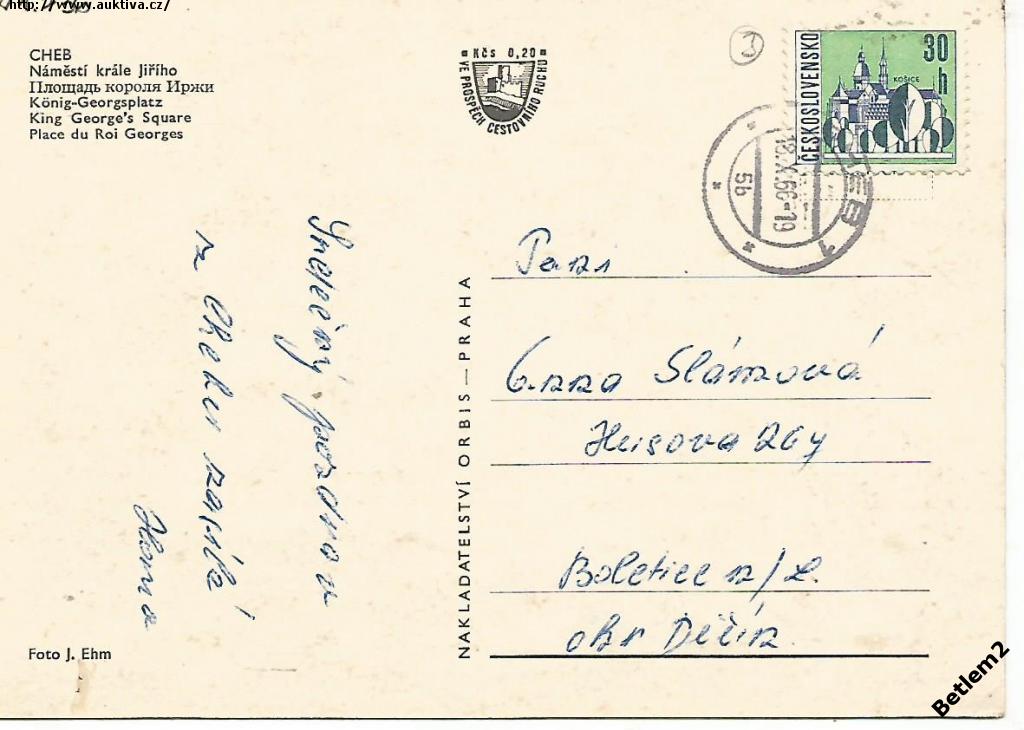 http://www.auktiva.cz/
CHEB
Náměstí krále Jiřího
Площадь короля Иржи
König-Georgsplatz
King George's Square
Place du Roi Georges
Kčs 0,20
VE PROSPĚCH CESTOVNÍHO RUCHU
ČESKOSLOVENSKO
30
h
KOŠICE
CHEB 1
18.X.66-19
5b
Srdečný pozdrav
z Chebu zasílá
NAKLADATELSTVÍ ORBIS — PRAHA
Paní
Anna Slámová
Husova 264
Boletice n/L.
okr Děčín
Foto J. Ehm
Betlem2